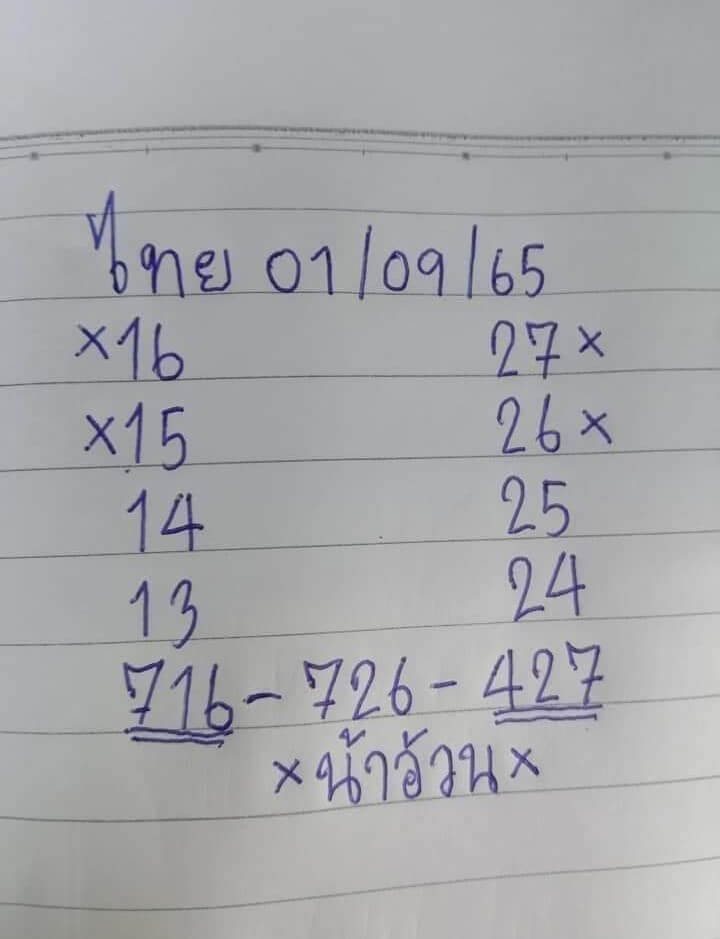 ไทย 01/09/65
×16 27×
×15 26×
14 25
13 24
716-726-427
×น้าอ้วน×